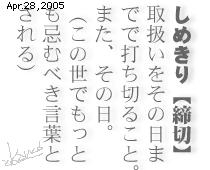 Apr.28,2005
しめきり【締切】
取扱いをその日ま
でで打ち切ること。
また、その日。
（この世でもっと
も忌むべき言葉と
される）